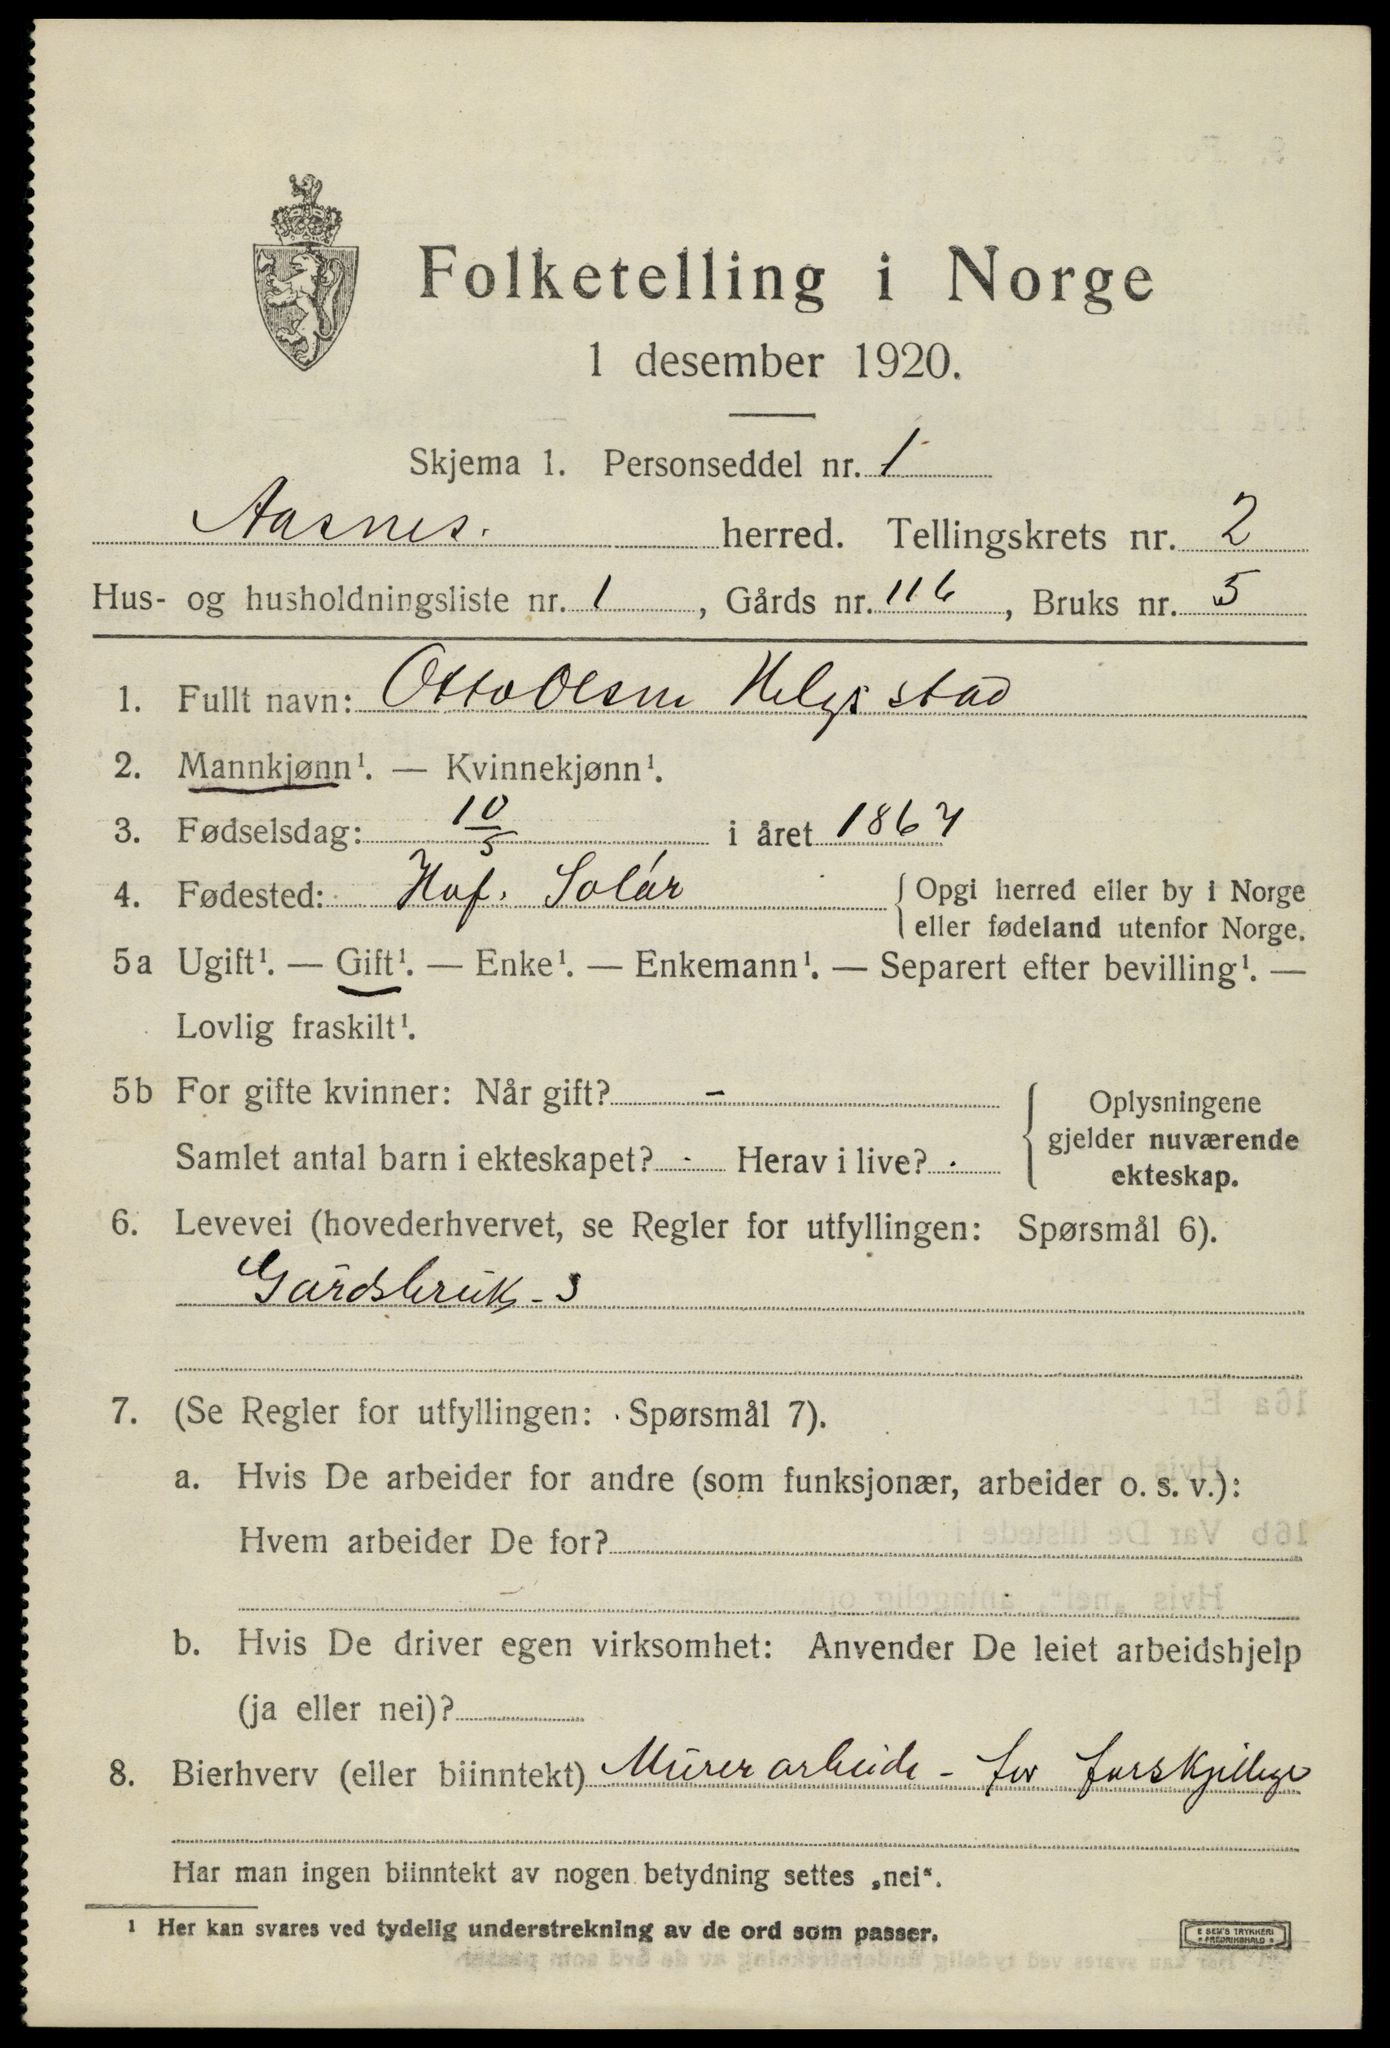 Folketelling i Norge
1 desember 1920.
Skjema 1. Personseddel nr. 1
Aasnes. herred. Tellingskrets nr. 2
Hus- og husholdningsliste nr. 1, Gårds nr. 116, Bruks nr. 5
1. Fullt navn: Otto Olsen Helgestad
2. Mannkjønn¹. — Kvinnekjønn¹.
3. Fødselsdag: 10/5 i året 1864
4. Fødested: Hof. Solør { Opgi herred eller by i Norge
eller fødeland utenfor Norge.
5a Ugift¹. — Gift¹. — Enke¹. — Enkemann¹. — Separert efter bevilling¹. —
Lovlig fraskilt¹.
5b For gifte kvinner: Når gift? - { Oplysningene
gjelder nuværende
ekteskap.
Samlet antal barn i ekteskapet? · Herav i live? ·
6. Levevei (hovederhvervet, se Regler for utfyllingen: Spørsmål 6).
Gårdsbruk - S
7. (Se Regler for utfyllingen: Spørsmål 7).
a. Hvis De arbeider for andre (som funksjonær, arbeider o. s. v.):
Hvem arbeider De for?
b. Hvis De driver egen virksomhet: Anvender De leiet arbeidshjelp
(ja eller nei)?
8. Bierhverv (eller biinntekt) Murerarbeide - for forskjellige
Har man ingen biinntekt av nogen betydning settes „nei“.
¹ Her kan svares ved tydelig understrekning av de ord som passer.
E SEM'S TRYKKERI
FREDRIKSHALD